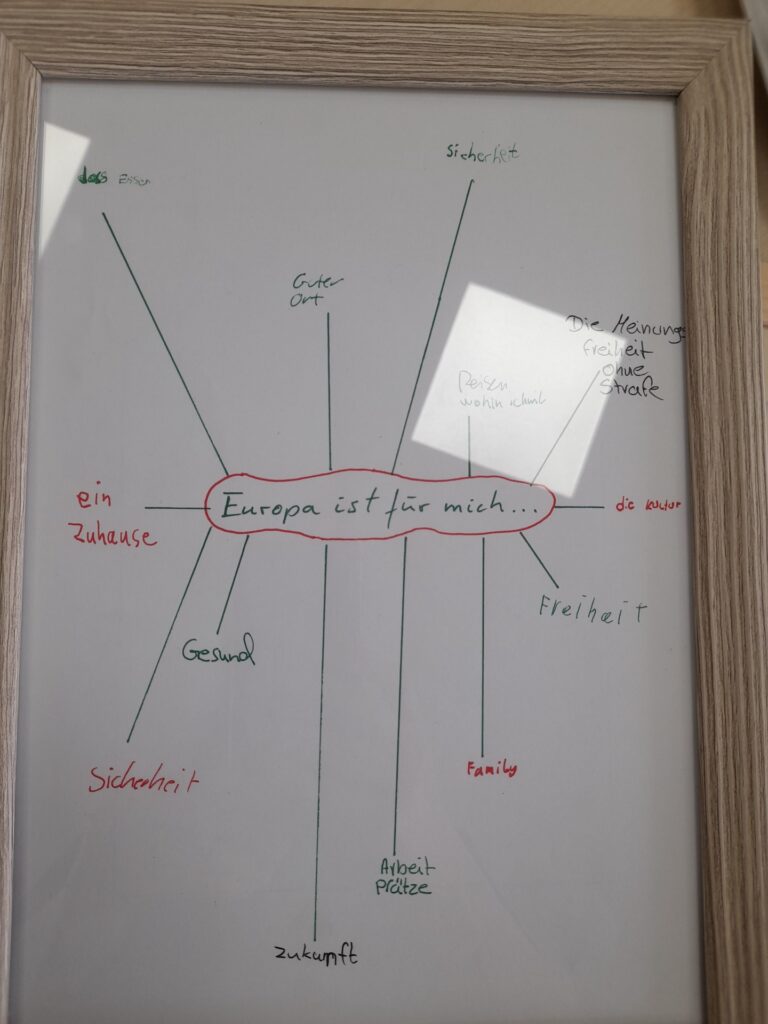 das Essen
Sicherheit
Guter
Ort
Die Meinungs
freiheit
ohne
Strafe
Reisen
wohin
ein
Zuhause
Europa ist für mich...
die Kultur
Freiheit
Gesund
Sicherheit
Family
Arbeit
Prätze
Zukunft